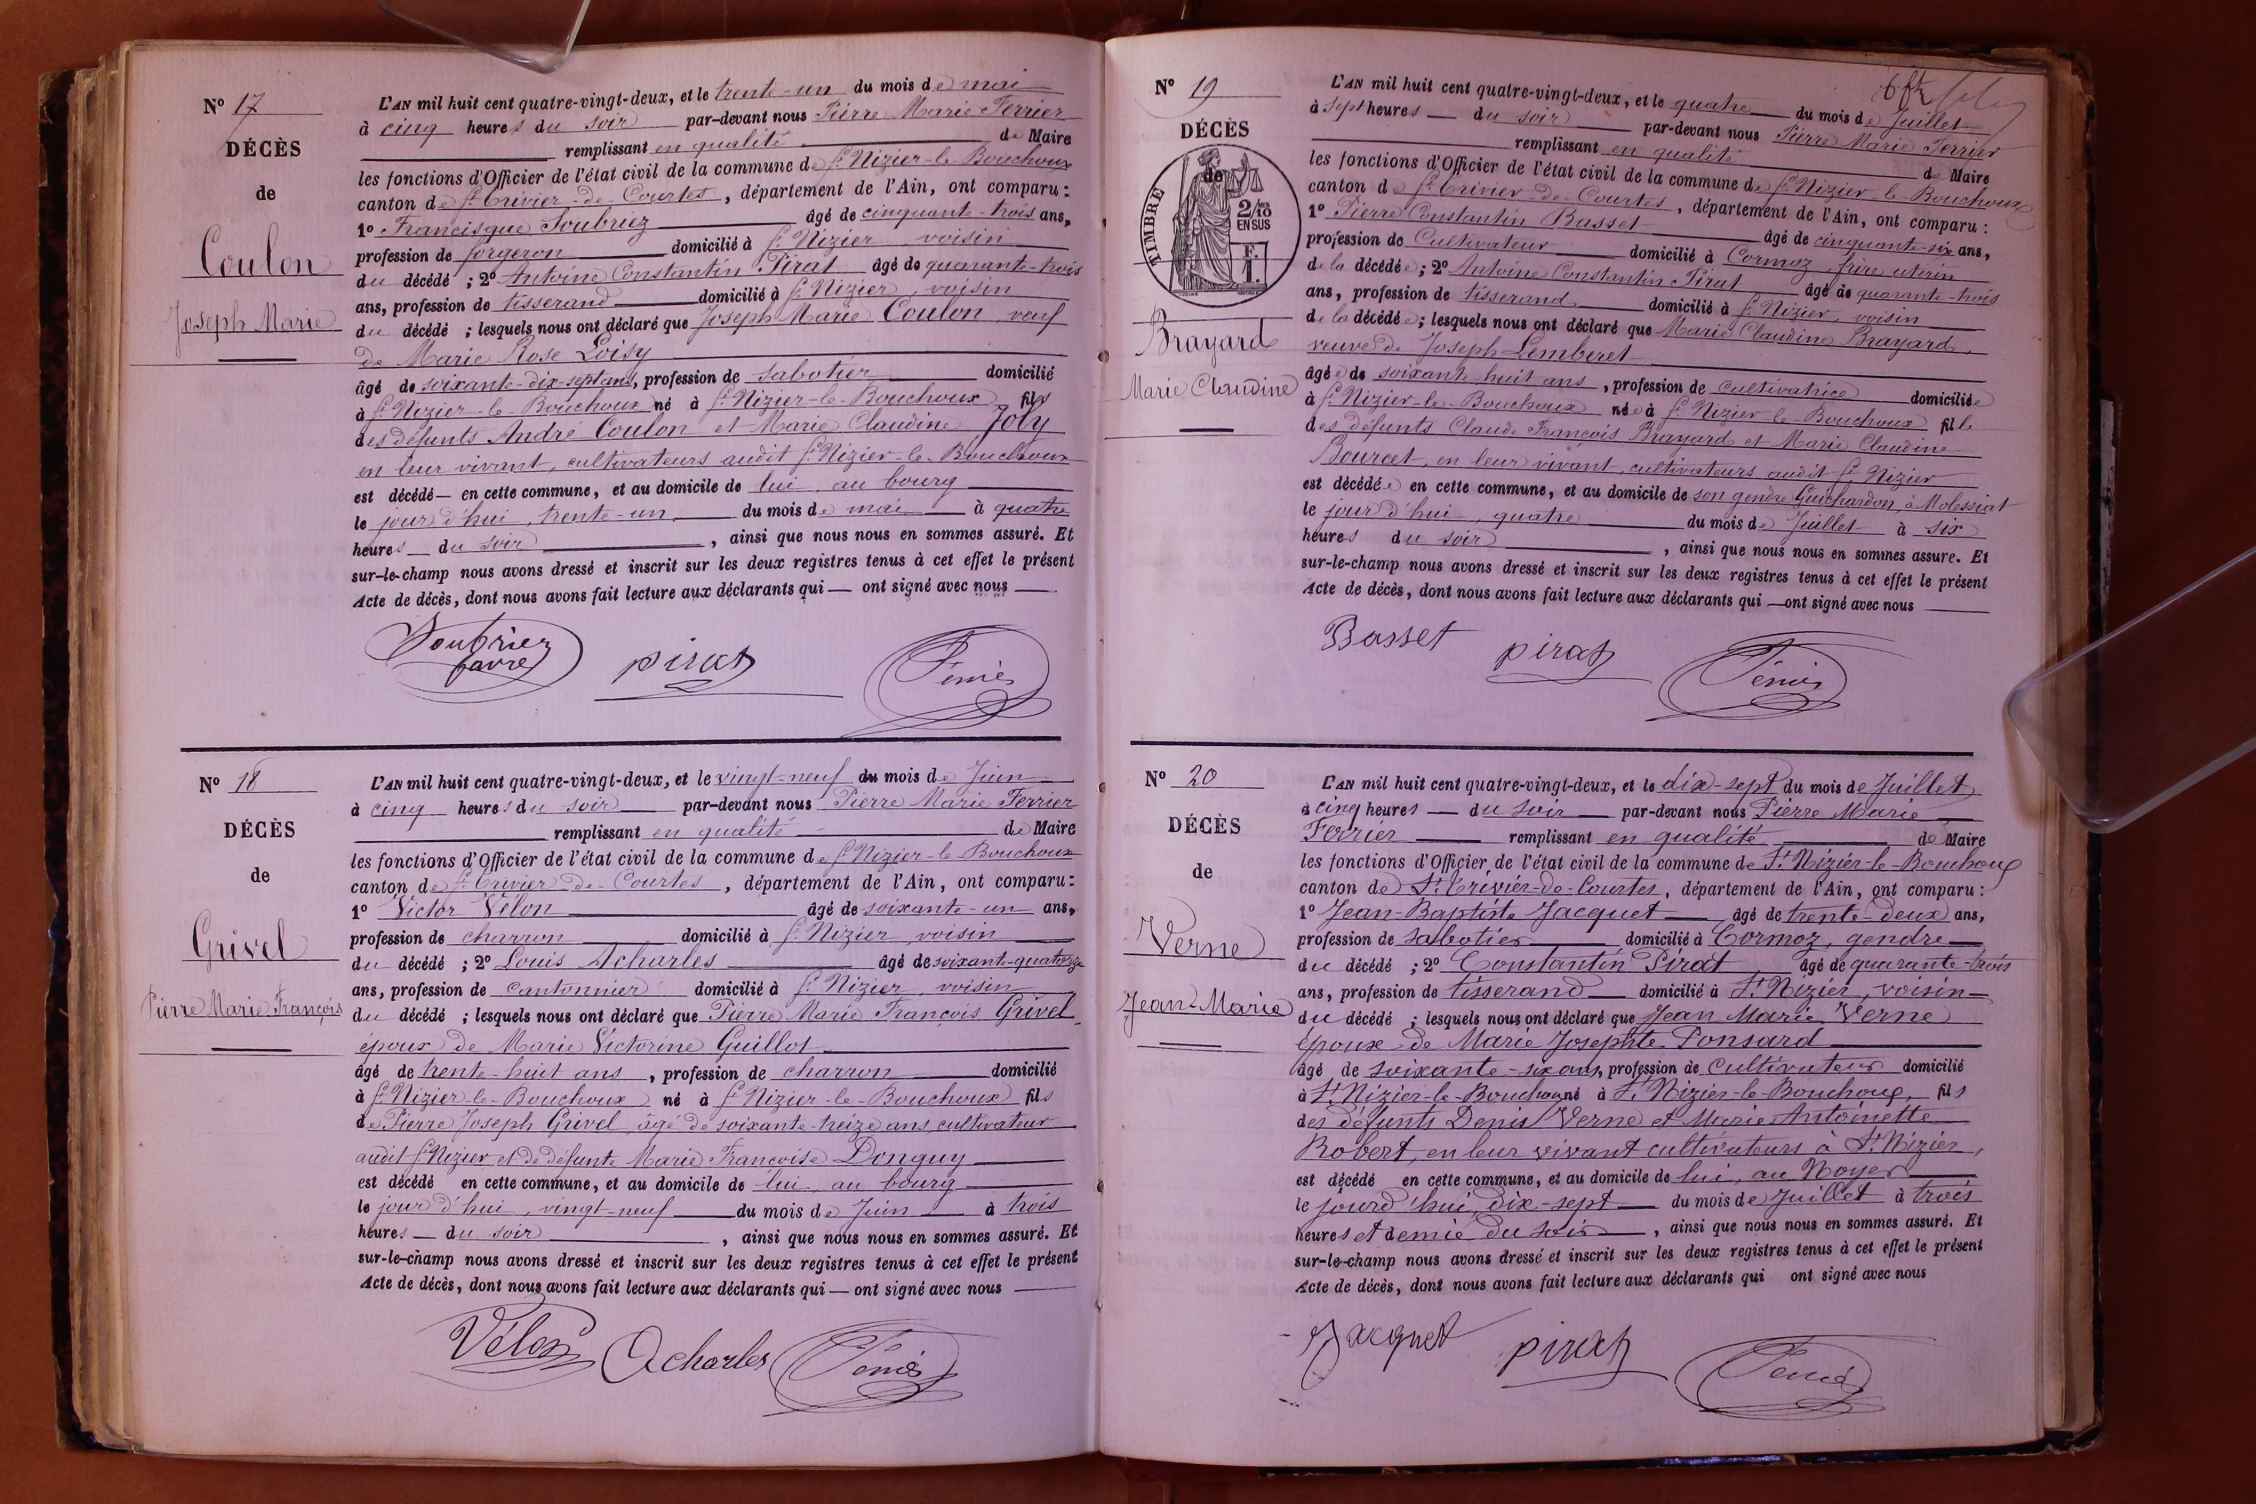 Nº 17
DÉCÈS
de
Coulon
Joseph Marie
L'AN mil huit cent quatre-vingt-deux, et le trente-un du mois de mai
à cinq heures du soir par-devant nous Pierre Marie Ferrier
remplissant en qualité de Maire
les fonctions d'Officier de l'état civil de la commune de St Nizier-le-Bouchoux
canton de St Trivier-de-Courtes, département de l'Ain, ont comparu:
1º Francisque Soubriez âgé de cinquante-trois ans,
profession de forgeron domicilié à St Nizier, voisin
du décédé ; 2º Antoine Constantin Pirat âgé de quarante-trois
ans, profession de tisserand domicilié à St Nizier, voisin
du décédé ; lesquels nous ont déclaré que Joseph Marie Coulon, veuf
de Marie Rose Loisy
âgé de soixante-dix-sept ans, profession de sabotier domicilié
à St Nizier-le-Bouchoux né à St Nizier-le-Bouchoux fils
des défunts André Coulon et Marie Claudine Joly
en leur vivant, cultivateurs audit St Nizier-le-Bouchoux
est décédé en cette commune, et au domicile de lui, au bourg
le jour d'hui, trente-un du mois de mai à quatre
heures du soir, ainsi que nous nous en sommes assuré. Et
sur-le-champ nous avons dressé et inscrit sur les deux registres tenus à cet effet le présent
Acte de décès, dont nous avons fait lecture aux déclarants qui ont signé avec nous
Soubriez
favre
pirat
Nº 18
DÉCÈS
de
Grivel
Pierre Marie François
L'AN mil huit cent quatre-vingt-deux, et le vingt-neuf du mois de Juin
à cinq heures du soir par-devant nous Pierre Marie Ferrier
remplissant en qualité de Maire
les fonctions d'Officier de l'état civil de la commune de St Nizier-le-Bouchoux
canton de St Trivier-de-Courtes, département de l'Ain, ont comparu:
1º Victor Vélon âgé de soixante-un ans,
profession de charron domicilié à St Nizier, voisin
du décédé ; 2º Louis Acharles âgé de soixante-quatorze
ans, profession de cantonnier domicilié à St Nizier, voisin
du décédé ; lesquels nous ont déclaré que Pierre Marie François Grivel,
époux de Marie Victorine Guillot
âgé de trente-huit ans, profession de charron domicilié
à St Nizier-le-Bouchoux né à St Nizier-le-Bouchoux fils
de Pierre Joseph Grivel, âgé de soixante-treize ans, cultivateur
audit St Nizier et de défunte Marie Françoise Donguy
est décédé en cette commune, et au domicile de lui, au bourg
le jour d'hui, vingt-neuf du mois de Juin à trois
heures du soir, ainsi que nous nous en sommes assuré. Et
sur-le-champ nous avons dressé et inscrit sur les deux registres tenus à cet effet le présent
Acte de décès, dont nous avons fait lecture aux déclarants qui ont signé avec nous
Vélon Acharles
Nº 19
DÉCÈS
de
TIMBRE
2/10
EN SUS
Brayard
Marie Claudine
L'AN mil huit cent quatre-vingt-deux, et le quatre du mois de Juillet
à sept heures du soir par-devant nous Pierre Marie Ferrier
remplissant en qualité de Maire
les fonctions d'Officier de l'état civil de la commune de St Nizier-le-Bouchoux
canton de St Trivier-de-Courtes, département de l'Ain, ont comparu:
1º Pierre Constantin Basset âgé de cinquante-six ans,
profession de Cultivateur domicilié à Cormoz, frère utérin
de la décédée ; 2º Antoine Constantin Pirat âgé de quarante-trois
ans, profession de tisserand domicilié à St Nizier, voisin
de la décédée ; lesquels nous ont déclaré que Marie Claudine Brayard,
veuve de Joseph Lemberet
âgée de soixante-huit ans, profession de cultivatrice domiciliée
à St Nizier-le-Bouchoux née à St Nizier-le-Bouchoux fille
des défunts Claude François Brayard et Marie Claudine
Bourcet, en leur vivant, cultivateurs audit St Nizier
est décédée en cette commune, et au domicile de son gendre Guichardon, à Molessiat
le jour d'hui, quatre du mois de Juillet à six
heures du soir, ainsi que nous nous en sommes assuré. Et
sur-le-champ nous avons dressé et inscrit sur les deux registres tenus à cet effet le présent
Acte de décès, dont nous avons fait lecture aux déclarants qui ont signé avec nous
Basset pirat
Nº 20
DÉCÈS
de
Verne
Jean-Marie
L'AN mil huit cent quatre-vingt-deux, et le dix-sept du mois de Juillet,
à cinq heures du soir par-devant nous Pierre Marie
Ferrier remplissant en qualité de Maire
les fonctions d'Officier de l'état civil de la commune de St Nizier-le-Bouchoux
canton de St Trivier-de-Courtes, département de l'Ain, ont comparu:
1º Jean-Baptiste Jacquet âgé de trente-deux ans,
profession de sabotier domicilié à Cormoz, gendre
du décédé ; 2º Constantin Pirat âgé de quarante-trois
ans, profession de tisserand domicilié à St Nizier, voisin
du décédé ; lesquels nous ont déclaré que Jean Marie Verne
époux de Marie Josephte Ponsard
âgé de soixante-six ans, profession de cultivateur domicilié
à St Nizier-le-Bouchoux né à St Nizier-le-Bouchoux, fils
des défunts Denis Verne et Marie Antoinette
Robert, en leur vivant cultivateurs à St Nizier,
est décédé en cette commune, et au domicile de lui, au Noyer
le jourd'hui, dix-sept du mois de Juillet à trois
heures et demie du soir, ainsi que nous nous en sommes assuré. Et
sur-le-champ nous avons dressé et inscrit sur les deux registres tenus à cet effet le présent
Acte de décès, dont nous avons fait lecture aux déclarants qui ont signé avec nous
Jacquet pirat